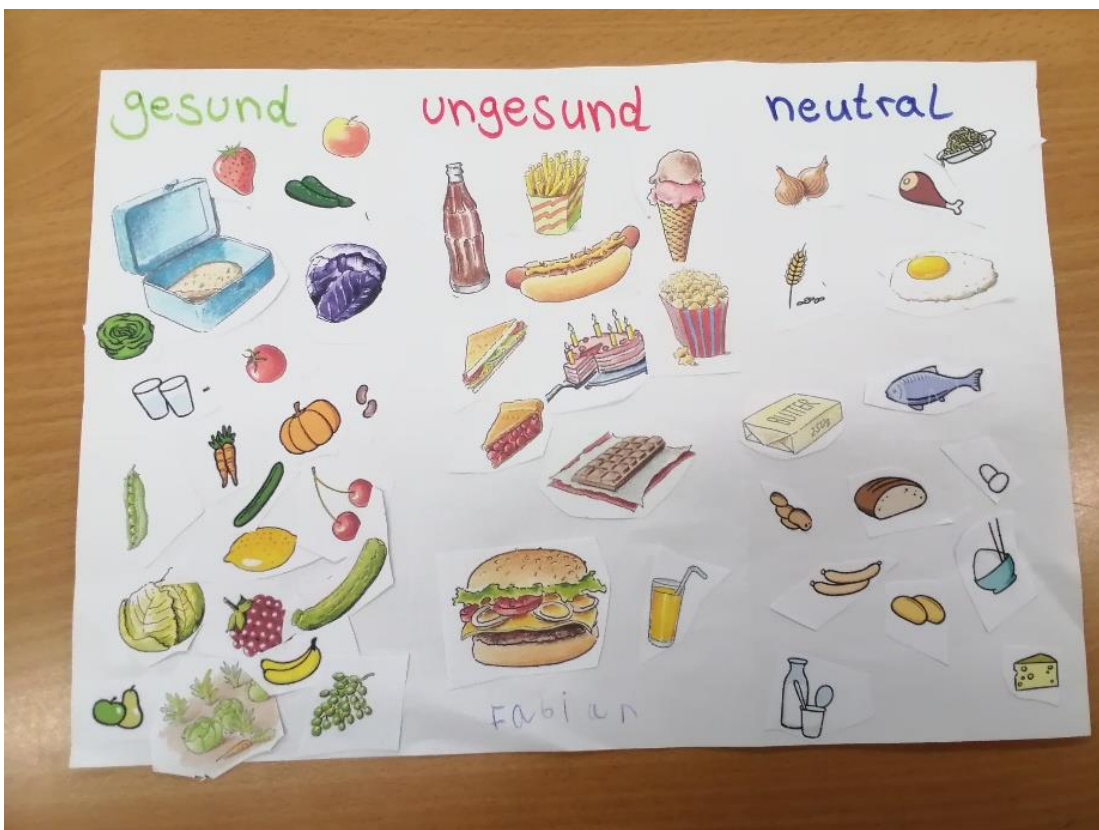 gesund ungesund neutral
BUTTER
250g
Fabian